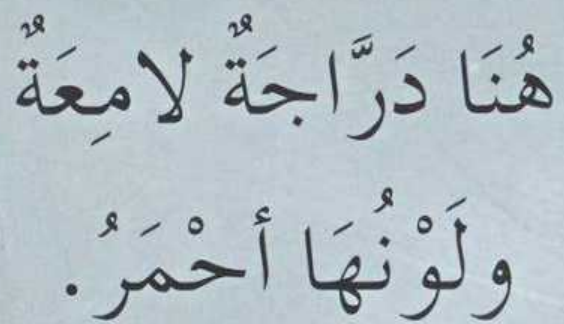 هُنَا دَرَّاجَةٌ لامِعَةٌ
ولَوْنُهَا أحْمَرُ.